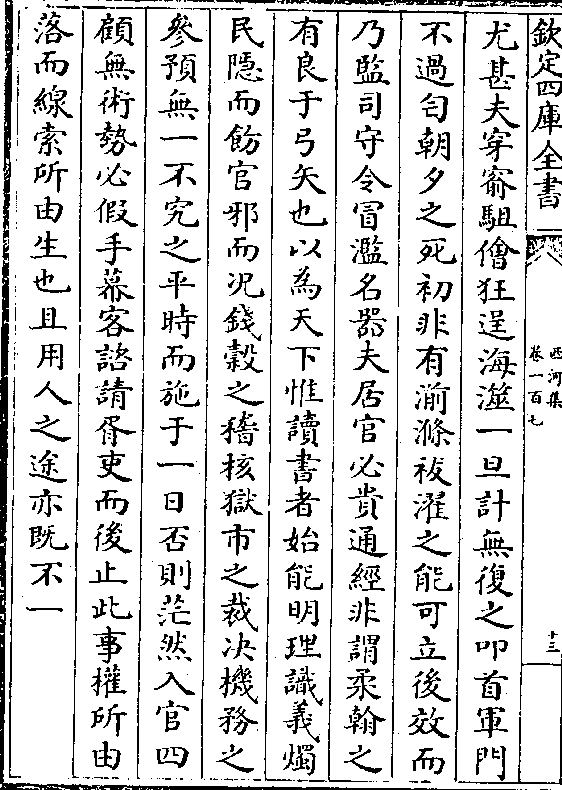 欽定四庫全書
西河集
卷一百七
十三
尤甚夫穿窬駔儈狂逞海澨一旦計無復之叩首軍門
不過匄朝夕之死初非有湔滌祓濯之能可立後效而
乃監司守令冒濫名器夫居官必貴通經非謂柔翰之
有良于弓矢也以為天下惟讀書者始能明理識義燭
民隱而飭官邪而况錢穀之稽核獄市之裁决機務之
參預無一不究之平時而施于一日否則茫然入官四
顧無術勢必假手幕客諮請胥吏而後止此事權所由
落而線索所由生也且用人之途亦既不一